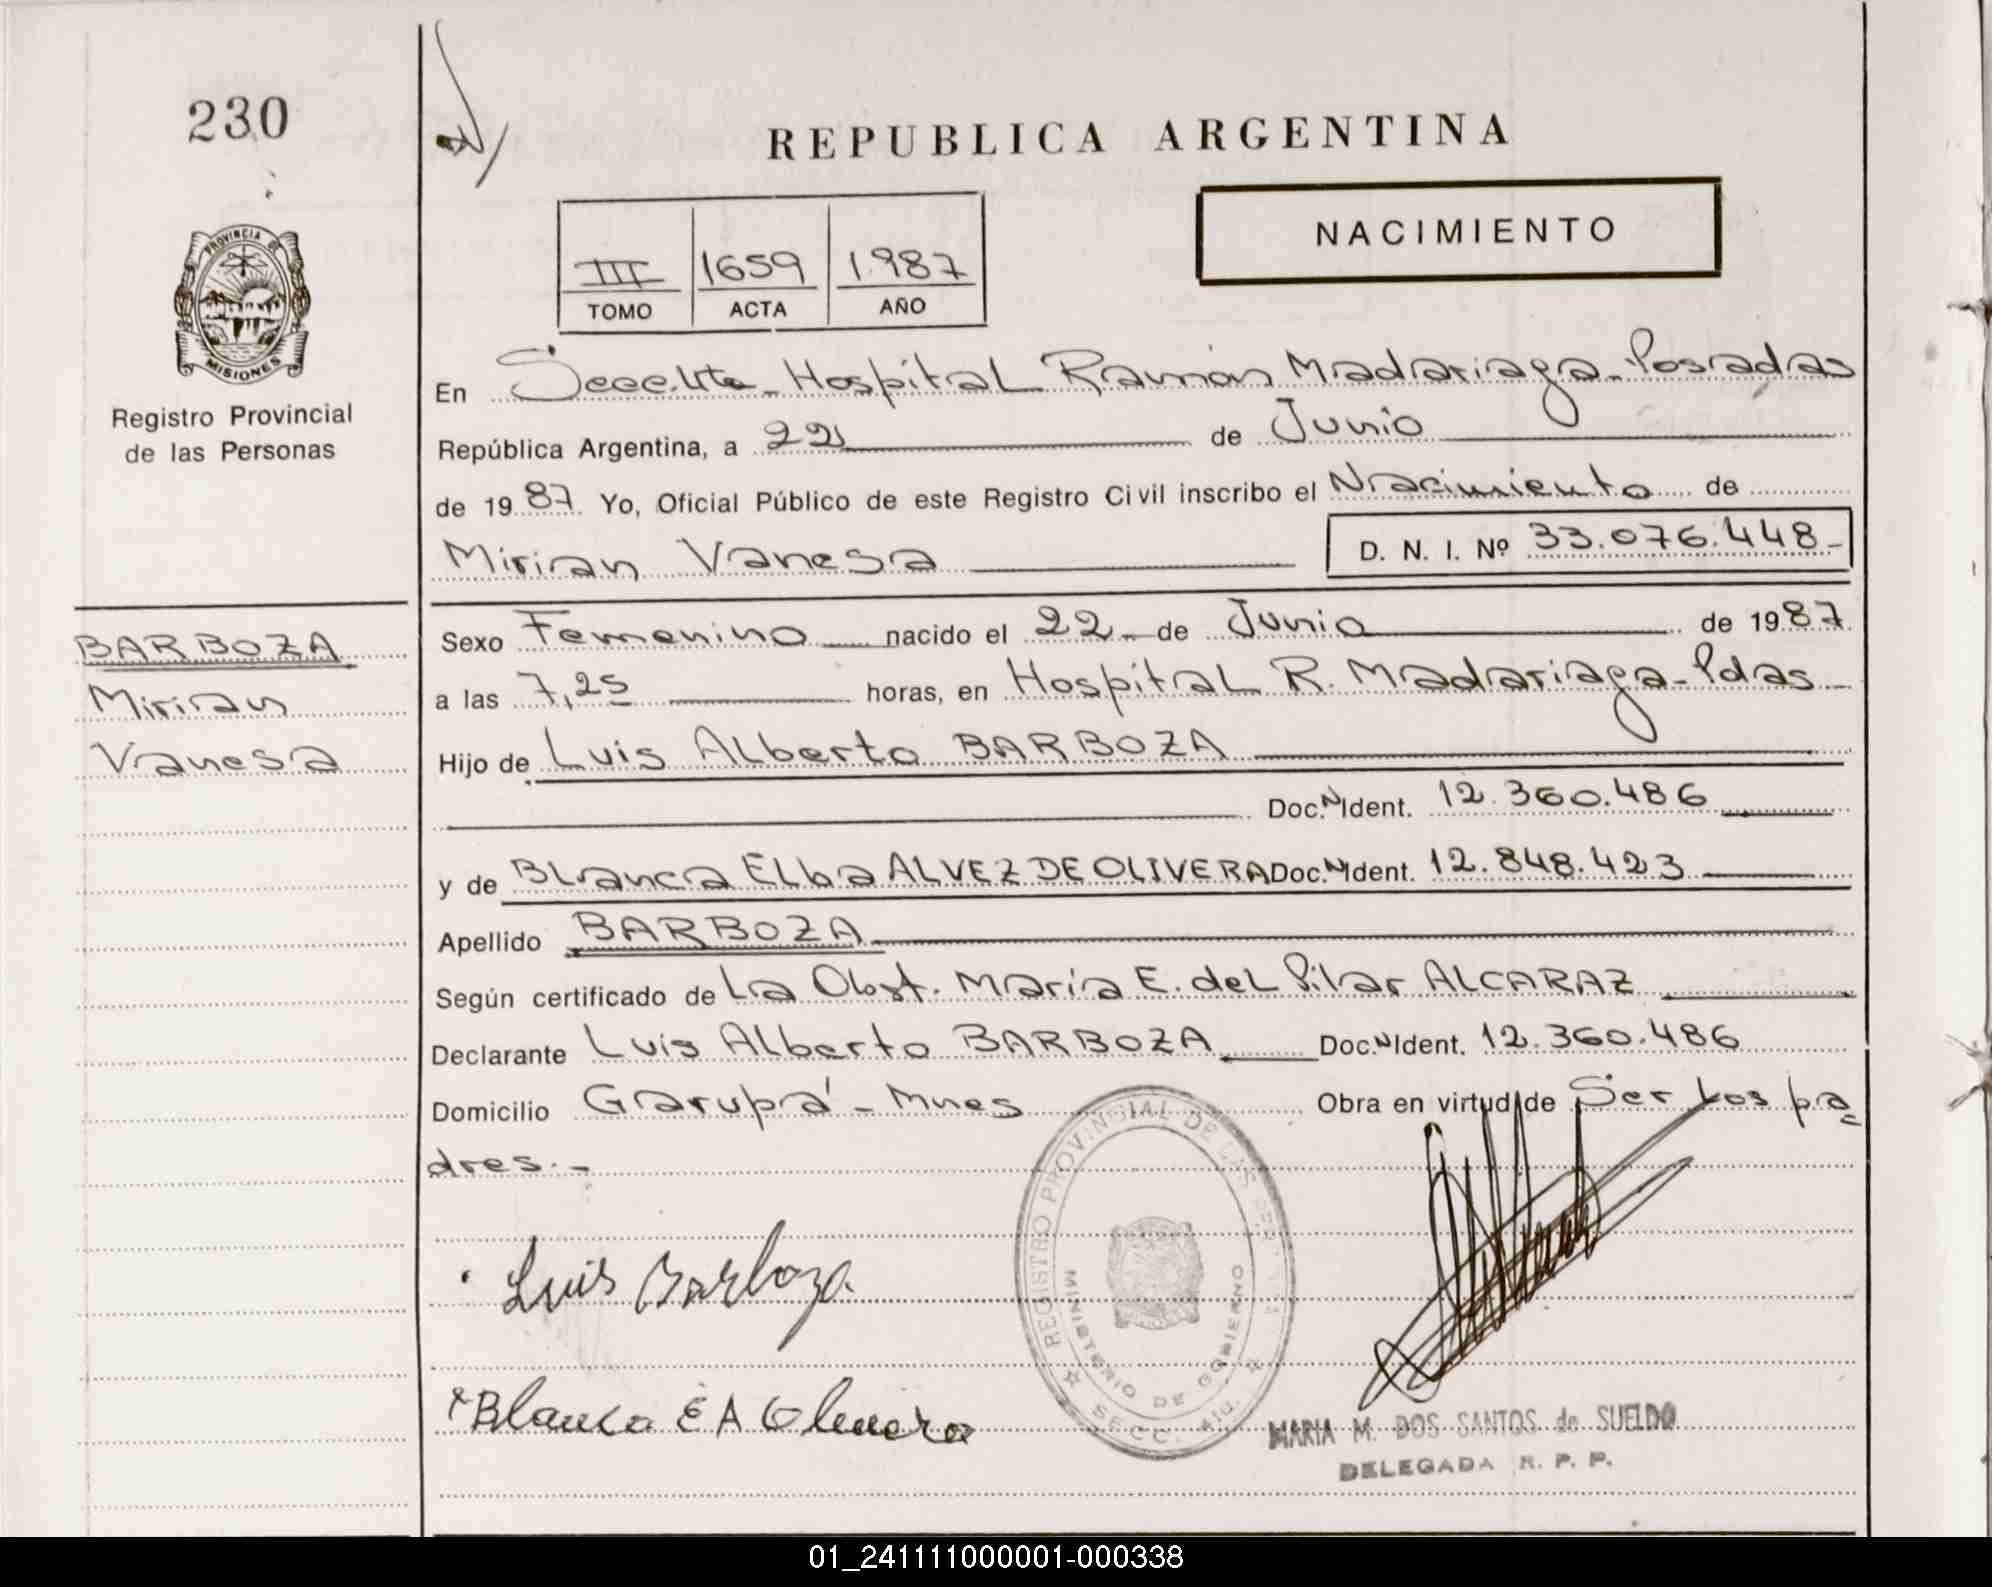 230
REPUBLICA ARGENTINA
NACIMIENTO
III 1659 1987
TOMO ACTA AÑO
PROVINCIA DE
MISIONES
Registro Provincial
de las Personas
En Secc. 4ta - Hospital Ramón Madariaga - Posadas
República Argentina, a 22 de Junio
de 1987 Yo, Oficial Público de este Registro Civil inscribo el Nacimiento de
Mirian Vanesa D. N. I. Nº 33.076.448-
BARBOZA
Mirian
Vanesa
Sexo Femenino nacido el 22 - de Junio de 1987
a las 7,25 horas, en Hospital R. Madariaga - Pdas
Hijo de Luis Alberto BARBOZA
Doc. N. Ident. 12.360.486
y de Blanca Elba ALVEZ DE OLIVERA Doc. N. Ident. 12.848.423
Apellido BARBOZA
Según certificado de La Obst. María E. del Pilar ALCARAZ
Declarante Luis Alberto BARBOZA Doc. N. Ident. 12.360.486
Domicilio Garupá - Mnes Obra en virtud de Ser los pa=
dres.-
REGISTRO PROVINCIAL DE LAS
MINISTERIO DE GOBIERNO
SECC. 4ta.
Luis Barboza
Blanca E A Olivera
MARIA M. DOS SANTOS de SUELDO
DELEGADA R. P. P.
01_241111000001-000338